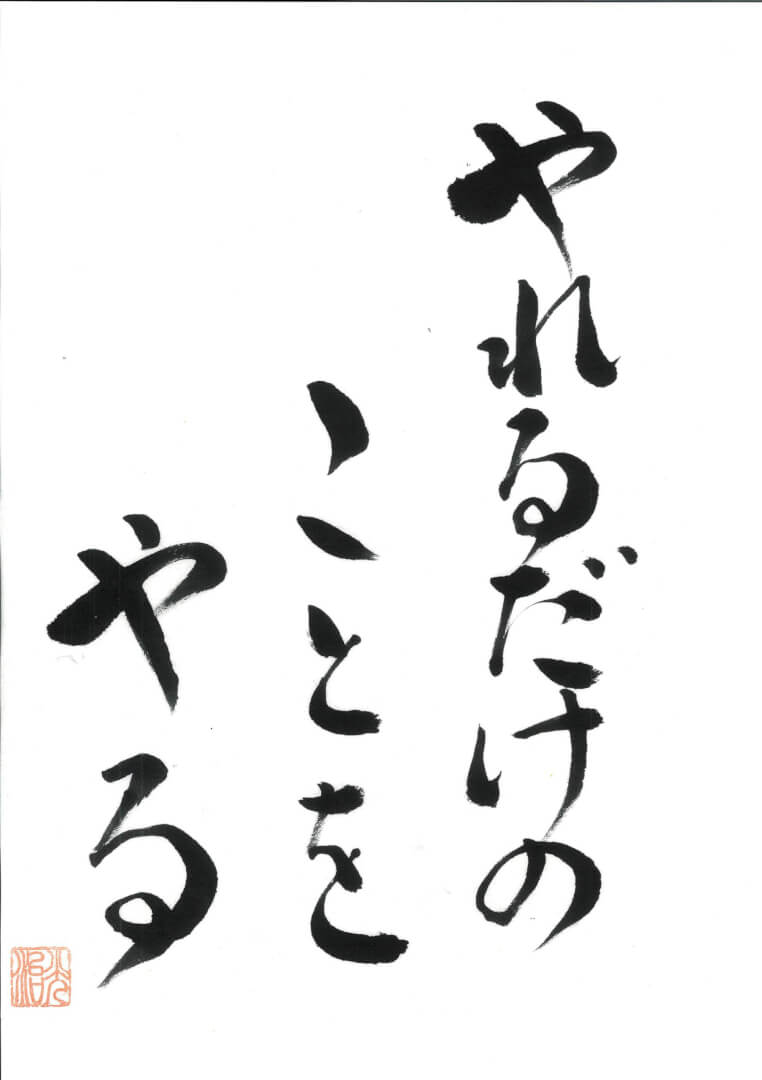 やれるだけの
ことを
やる